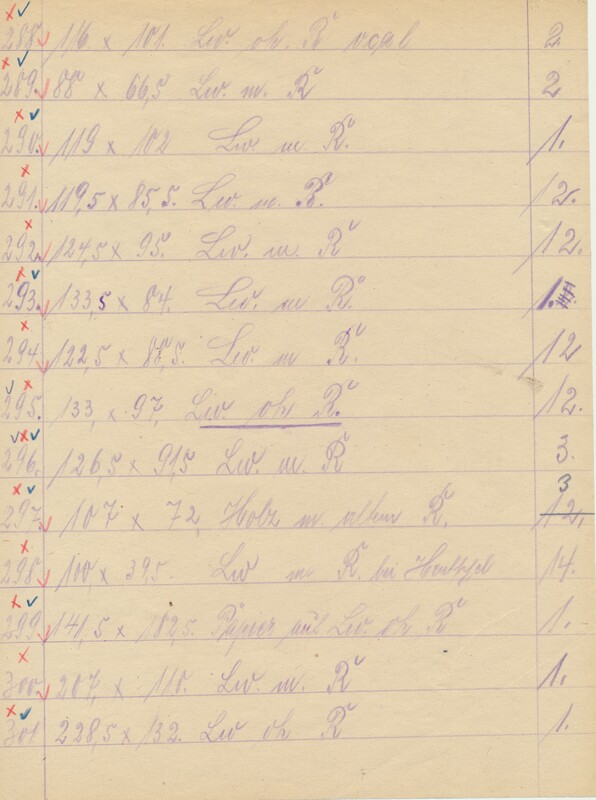 288. 116 x 101. Lw. oh. R vogl 2
289. 88 x 66,5 Lw. m. R 2
290. 119 x 102 Lw. m R. 1.
291. 119,5 x 85,5. Lw. m. R. 12.
292. 124,5 x 95. Lw. m. R 12.
293. 133,5 x 84. Lw. m R. 1.
294. 122,5 x 88,5. Lw. m R. 12
295. 133, x 97, Lw. oh R. 12.
296. 126,5 x 91,5 Lw. m. R 3.
3
297. 107 x 72, Holz m. altem R. 12.
298. 100, x 39,5. Lw m R. bei 14.
299. 141,5 x 182,5. Papier auf Lw. oh R 1.
300. 207, x 110. Lw. m. R 1.
301 228,5 x 132. Lw oh R 1.